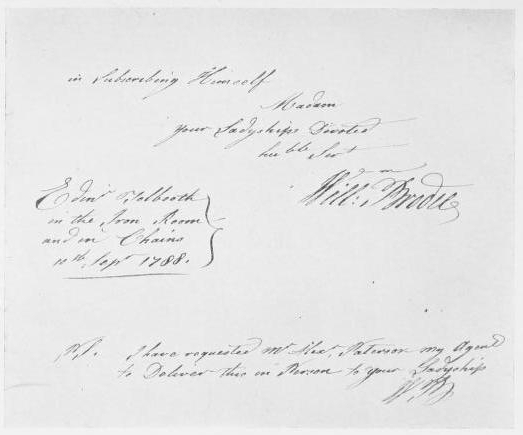 in Subscribing Himself
Madam
your Ladyships Devoted
hu<sup>ble</sup> Serv<sup>t</sup>
Will: Brodie
Edin<sup>r</sup> Tolbooth
in the Iron Room
and in Chains
Sep<sup>r</sup> 1788.
P.S. I have requested M<sup>r</sup> Alex<sup>r</sup> Paterson my Agent
to Deliver this in Person to your Ladyship
W.B.